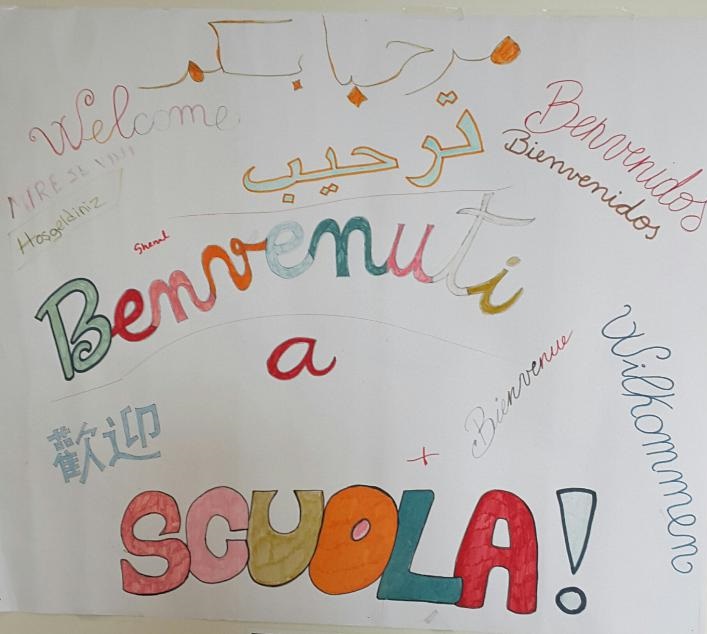 مرحبا بكم
Welcome
ترحيب
Benvenidos
Bienvenidos
MIRE SE VINI
Hosgeldiniz
Benvenuti
a
Bienvenue
Wilkommen
歡迎
SCUOLA!